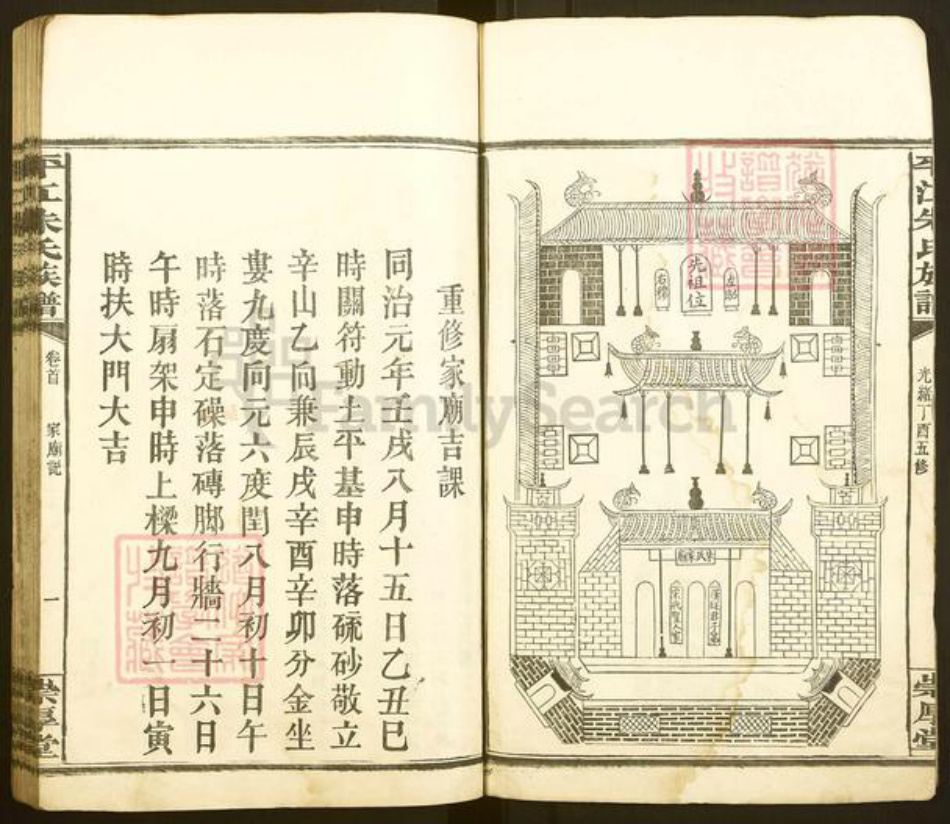 平江朱氏族譜
光緒丁酉五修
崇厚堂
先祖位
左昭
右穆
朱氏家廟
漢廷君子第
宋代聖人室
重修家廟吉課
同治元年壬戌八月十五日乙丑巳
時關符動土平基申時落硫砂敬立
辛山乙向兼辰戌辛酉辛卯分金坐
婁九度向元六度閏八月初十日午
時落石定磉落磚脚行牆二十六日
午時扇架申時上樑九月初一日寅
時扶大門大吉
平江朱氏族譜
卷首
家廟説
一
崇厚堂
FamilySearch